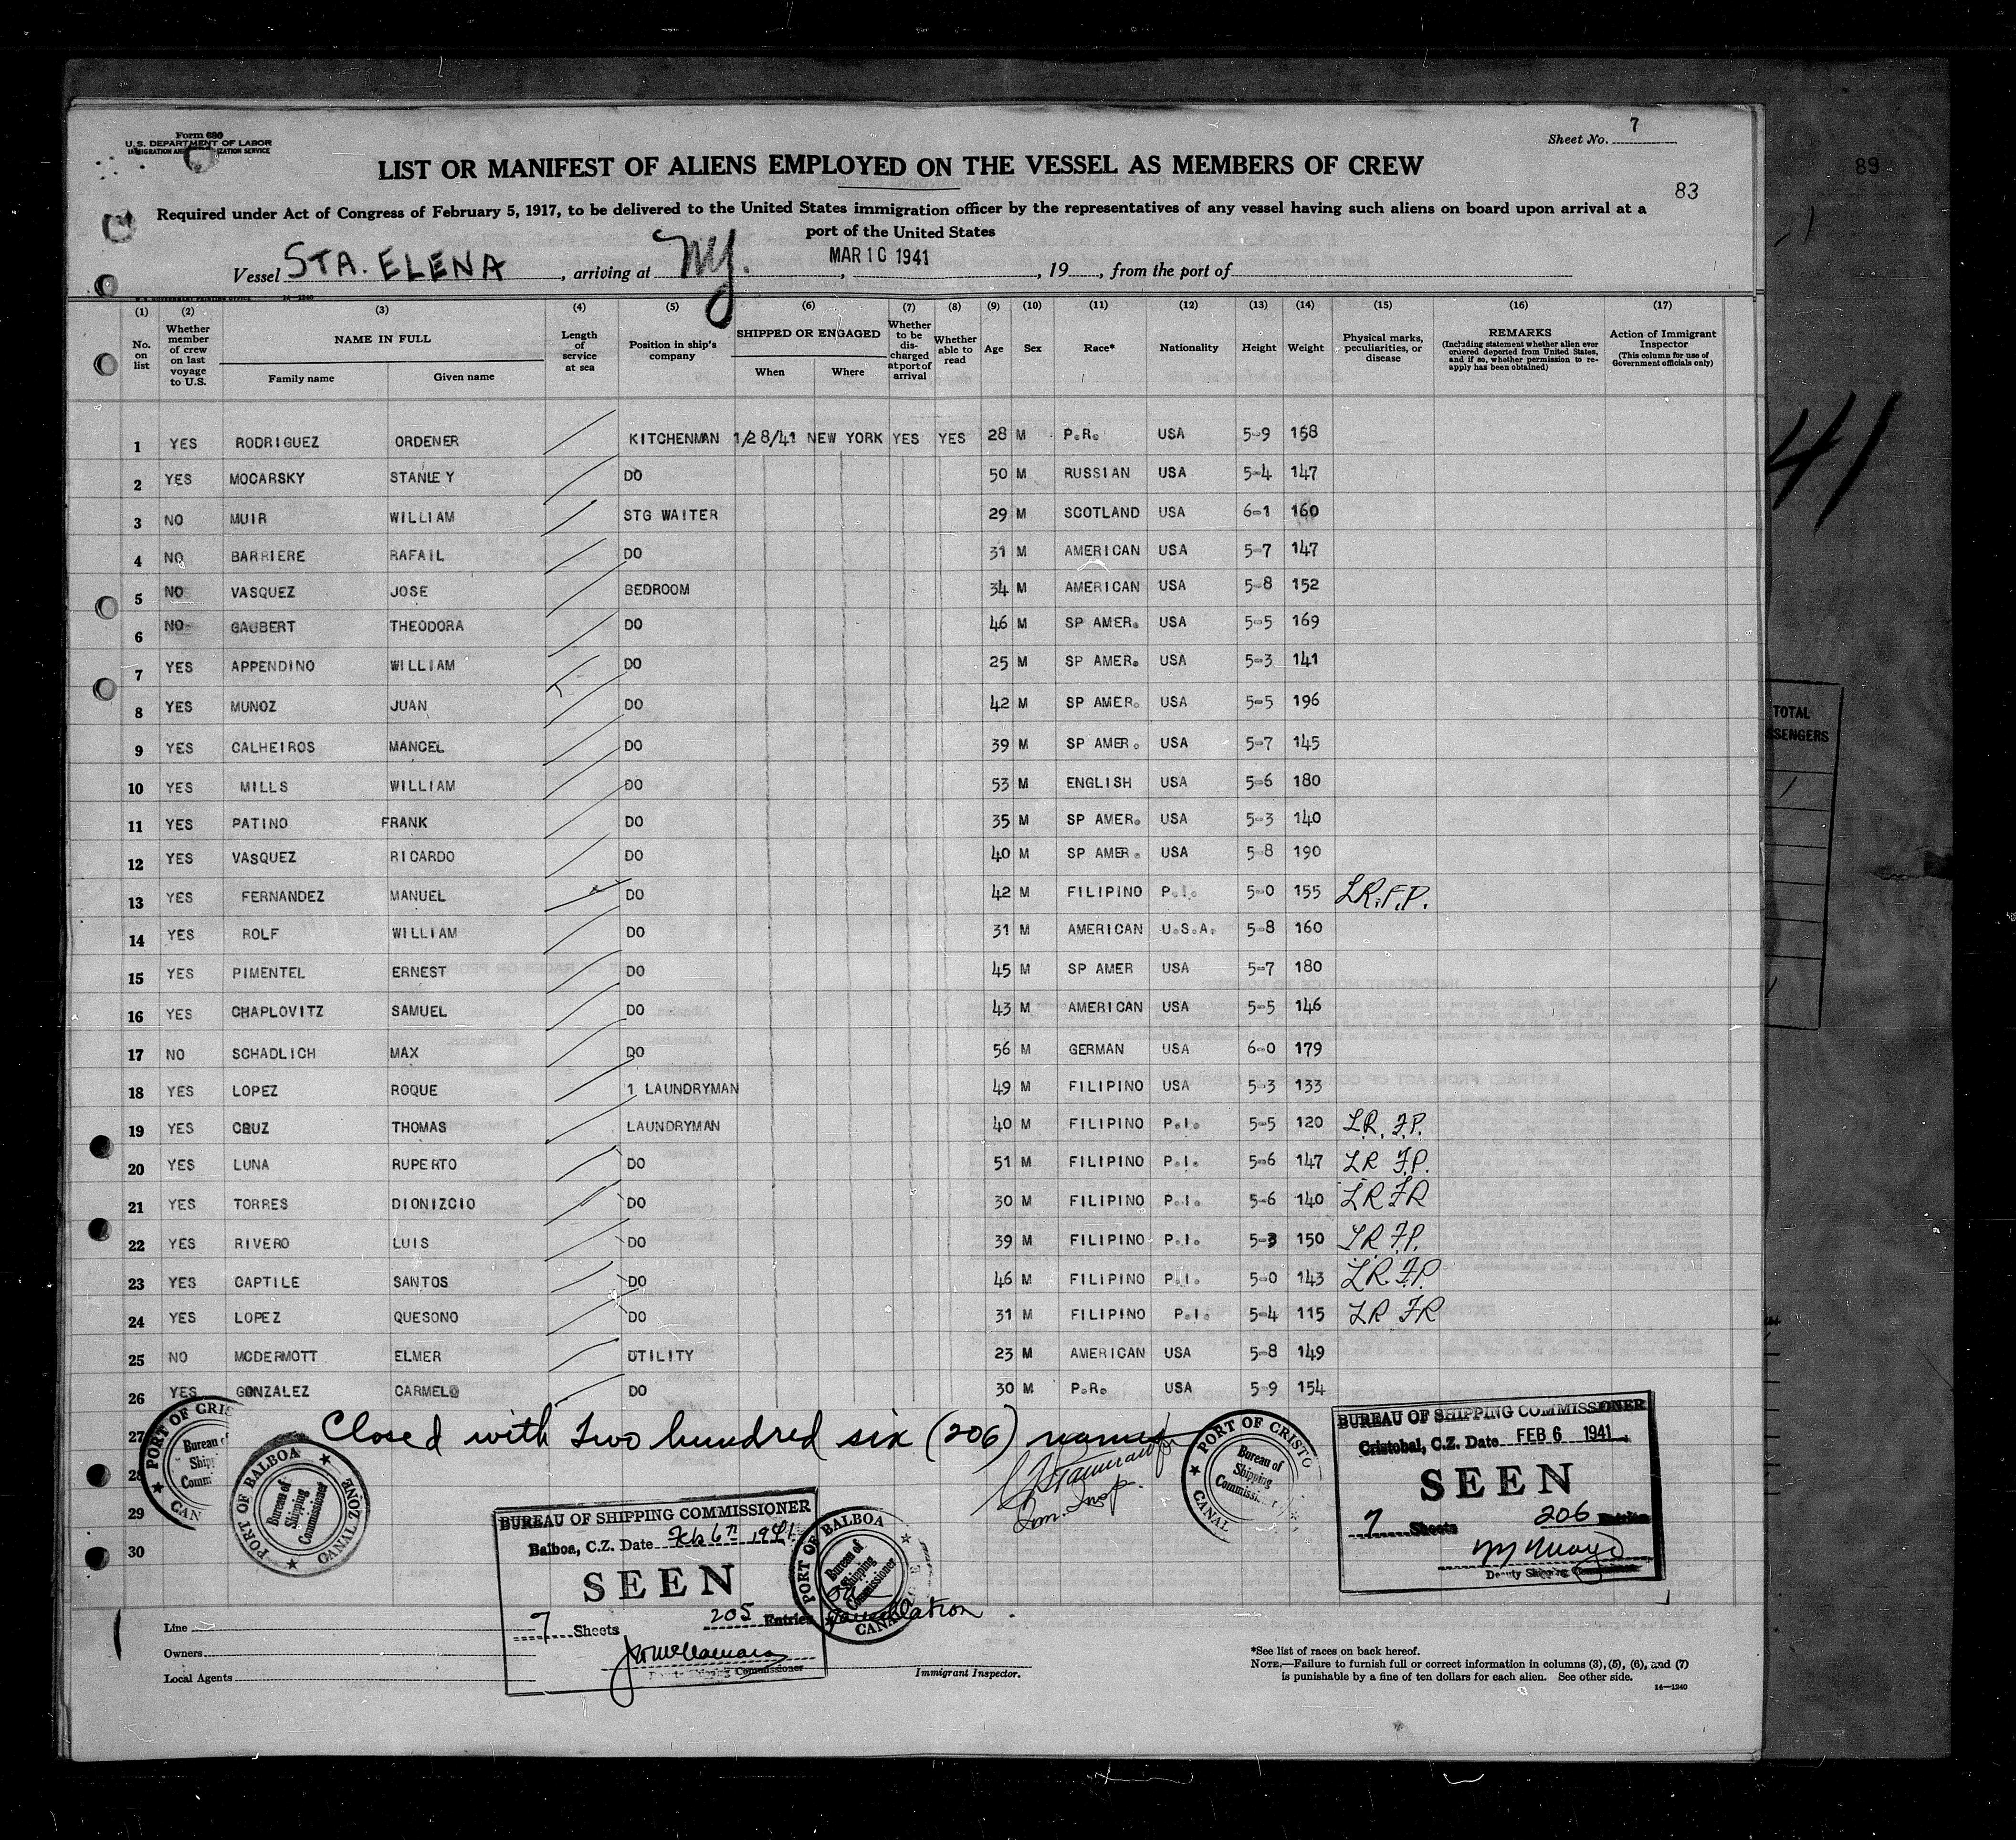 Form 680
U.S. DEPARTMENT OF LABOR
Sheet No. 7
LIST OR MANIFEST OF ALIENS EMPLOYED ON THE VESSEL AS MEMBERS OF CREW
83
89
Required under Act of Congress of February 5, 1917, to be delivered to the United States immigration officer by the representatives of any vessel having such aliens on board upon arrival at a
port of the United States
Vessel STA. ELENA, arriving at NY., MAR 10 1941, 19, from the port of
14-1240
(1) (2) (3) (4) (5) (6) (7) (8) (9) (10) (11) (12) (13) (14) (15) (16) (17)
No. on list
Whether member of crew on last voyage to U.S.
NAME IN FULL
Family name Given name
Length of service at sea
Position in ship's company
SHIPPED OR ENGAGED
When Where
Whether to be discharged at port of arrival
Whether able to read
Age Sex Race* Nationality Height Weight
Physical marks, peculiarities, or disease
REMARKS
(Including statement whether alien ever ordered deported from United States, and if so, whether permission to re-apply has been obtained)
Action of Immigrant Inspector
(This column for use of Government officials only)
1 YES RODRIGUEZ ORDENER KITCHENMAN 1/28/41 NEW YORK YES YES 28 M P.R. USA 5-9 158
2 YES MOCARSKY STANLEY DO 50 M RUSSIAN USA 5-4 147
3 NO MUIR WILLIAM STG WAITER 29 M SCOTLAND USA 6-1 160
4 NO BARRIERE RAFAIL DO 31 M AMERICAN USA 5-7 147
5 NO VASQUEZ JOSE BEDROOM 34 M AMERICAN USA 5-8 152
6 NO GAUBERT THEODORA DO 46 M SP AMER. USA 5-5 169
7 YES APPENDINO WILLIAM DO 25 M SP AMER. USA 5-3 141
8 YES MUNOZ JUAN DO 42 M SP AMER. USA 5-5 196
9 YES CALHEIROS MANCEL DO 39 M SP AMER. USA 5-7 145
10 YES MILLS WILLIAM DO 53 M ENGLISH USA 5-6 180
11 YES PATINO FRANK DO 35 M SP AMER. USA 5-3 140
12 YES VASQUEZ RICARDO DO 40 M SP AMER. USA 5-8 190
13 YES FERNANDEZ MANUEL DO 42 M FILIPINO P.I. 5-0 155 L.R.F.P.
14 YES ROLF WILLIAM DO 31 M AMERICAN U.S.A. 5-8 160
15 YES PIMENTEL ERNEST DO 45 M SP AMER USA 5-7 180
16 YES CHAPLOVITZ SAMUEL DO 43 M AMERICAN USA 5-5 146
17 NO SCHADLICH MAX DO 56 M GERMAN USA 6-0 179
18 YES LOPEZ ROQUE 1 LAUNDRYMAN 49 M FILIPINO USA 5-3 133
19 YES CRUZ THOMAS LAUNDRYMAN 40 M FILIPINO P.I. 5-5 120 L.R. F.P.
20 YES LUNA RUPERTO DO 51 M FILIPINO P.I. 5-6 147 L R F.P.
21 YES TORRES DIONIZCIO DO 30 M FILIPINO P.I. 5-6 140 L R F P
22 YES RIVERO LUIS DO 39 M FILIPINO P.I. 5-3 150 L R F.P.
23 YES CAPTILE SANTOS DO 46 M FILIPINO P.I. 5-0 143 L.R. F.P
24 YES LOPEZ QUESONO DO 31 M FILIPINO P.I. 5-4 115 L R F P
25 NO MCDERMOTT ELMER UTILITY 23 M AMERICAN USA 5-8 149
26 YES GONZALEZ CARMELO DO 30 M P.R. USA 5-9 154
27
28
29
30
Closed with Two hundred six (206) names
Imm. Insp.
PORT OF CRIS
Bureau of Shipping
CAN
PORT OF BALBOA CANAL ZONE
Bureau of Shipping Commissioner
BUREAU OF SHIPPING COMMISSIONER
Balboa, C.Z. Date Feb 6th 1941
SEEN
7 Sheets 205 Entries
PORT OF BALBOA CANAL
Bureau of Shipping Commissioner
PORT OF CRISTO CANAL
Bureau of Shipping
BUREAU OF SHIPPING COMMISSIONER
Cristobal, C.Z. Date FEB 6 1941
SEEN
7 Sheets 206 Entries
Deputy Shipping Commissioner
Line
Owners
Local Agents
Immigrant Inspector.
*See list of races on back hereof.
NOTE.—Failure to furnish full or correct information in columns (3), (5), (6), and (7)
is punishable by a fine of ten dollars for each alien. See other side.
14-1240
41
TOTAL
SENGERS